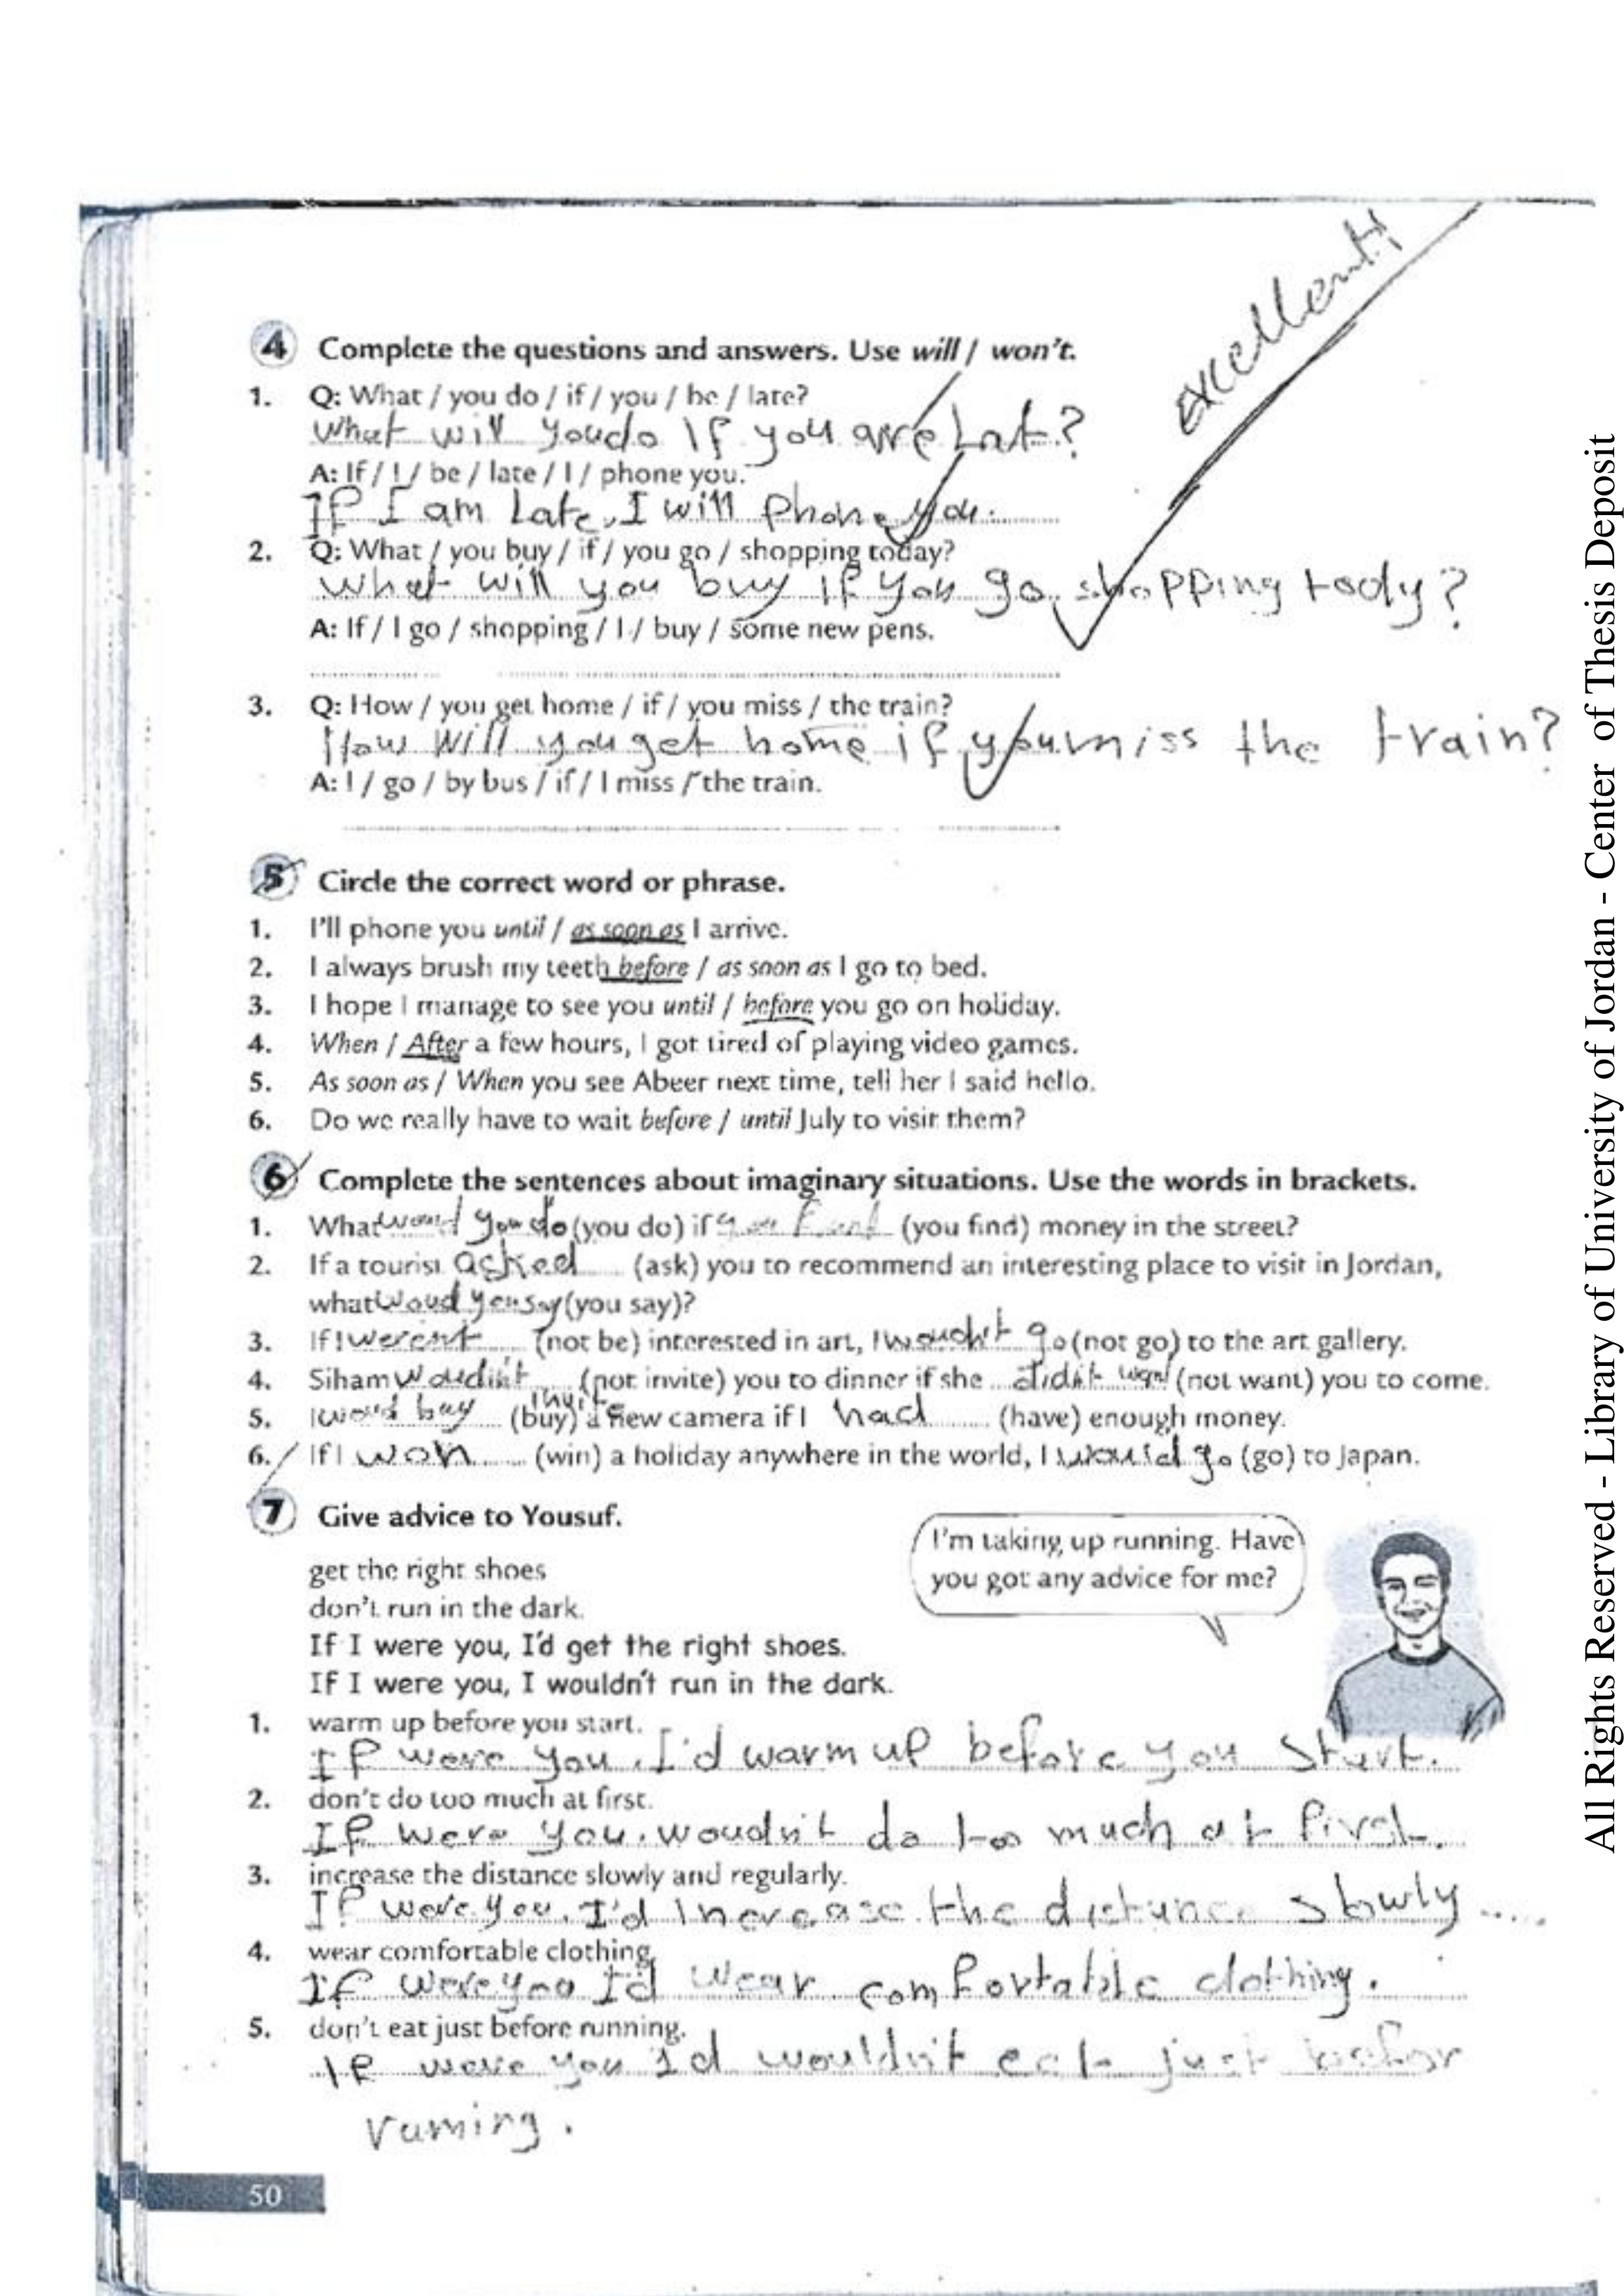 excellent
4 Complete the questions and answers. Use will / won't.
1. Q: What / you do / if / you / be / late?
What will you do If you are Lat?
A: If / I / be / late / I / phone you.
If I am Late, I will phone you.
2. Q: What / you buy / if / you go / shopping today?
What will you buy if you go shopping tody?
A: If / I go / shopping / I / buy / some new pens.
3. Q: How / you get home / if / you miss / the train?
How will you get home if you miss the train?
A: I / go / by bus / if / I miss / the train.
5 Circle the correct word or phrase.
1. I'll phone you until / as soon as I arrive.
2. I always brush my teeth before / as soon as I go to bed.
3. I hope I manage to see you until / before you go on holiday.
4. When / After a few hours, I got tired of playing video games.
5. As soon as / When you see Abeer next time, tell her I said hello.
6. Do we really have to wait before / until July to visit them?
6 Complete the sentences about imaginary situations. Use the words in brackets.
1. What would you do (you do) if you (you find) money in the street?
2. If a tourist asked (ask) you to recommend an interesting place to visit in Jordan,
what woud you say (you say)?
3. If I werent (not be) interested in art, I woudn't go (not go) to the art gallery.
4. Siham woudin't (not invite) you to dinner if she didn't (not want) you to come.
5. I woud buy (buy) a new camera if I had (have) enough money.
6. If I won (win) a holiday anywhere in the world, I would go (go) to Japan.
7 Give advice to Yousuf.
I'm taking up running. Have
you got any advice for me?
get the right shoes
don't run in the dark.
If I were you, I'd get the right shoes.
If I were you, I wouldn't run in the dark.
1. warm up before you start.
If were you, I'd warm up before you start.
2. don't do too much at first.
If were you, woudn't do too much at first.
3. increase the distance slowly and regularly.
If were you, I'd Increase the distance slowly ....
4. wear comfortable clothing.
If were you I'd wear comfortable clothing.
5. don't eat just before running.
If were you I'd wouldn't eat just befor
runing.
50
All Rights Reserved - Library of University of Jordan - Center of Thesis Deposit